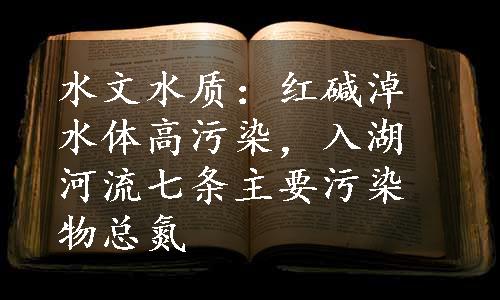 水文水质：红碱淖
水体高污染，入湖
河流七条主要污染
物总氮